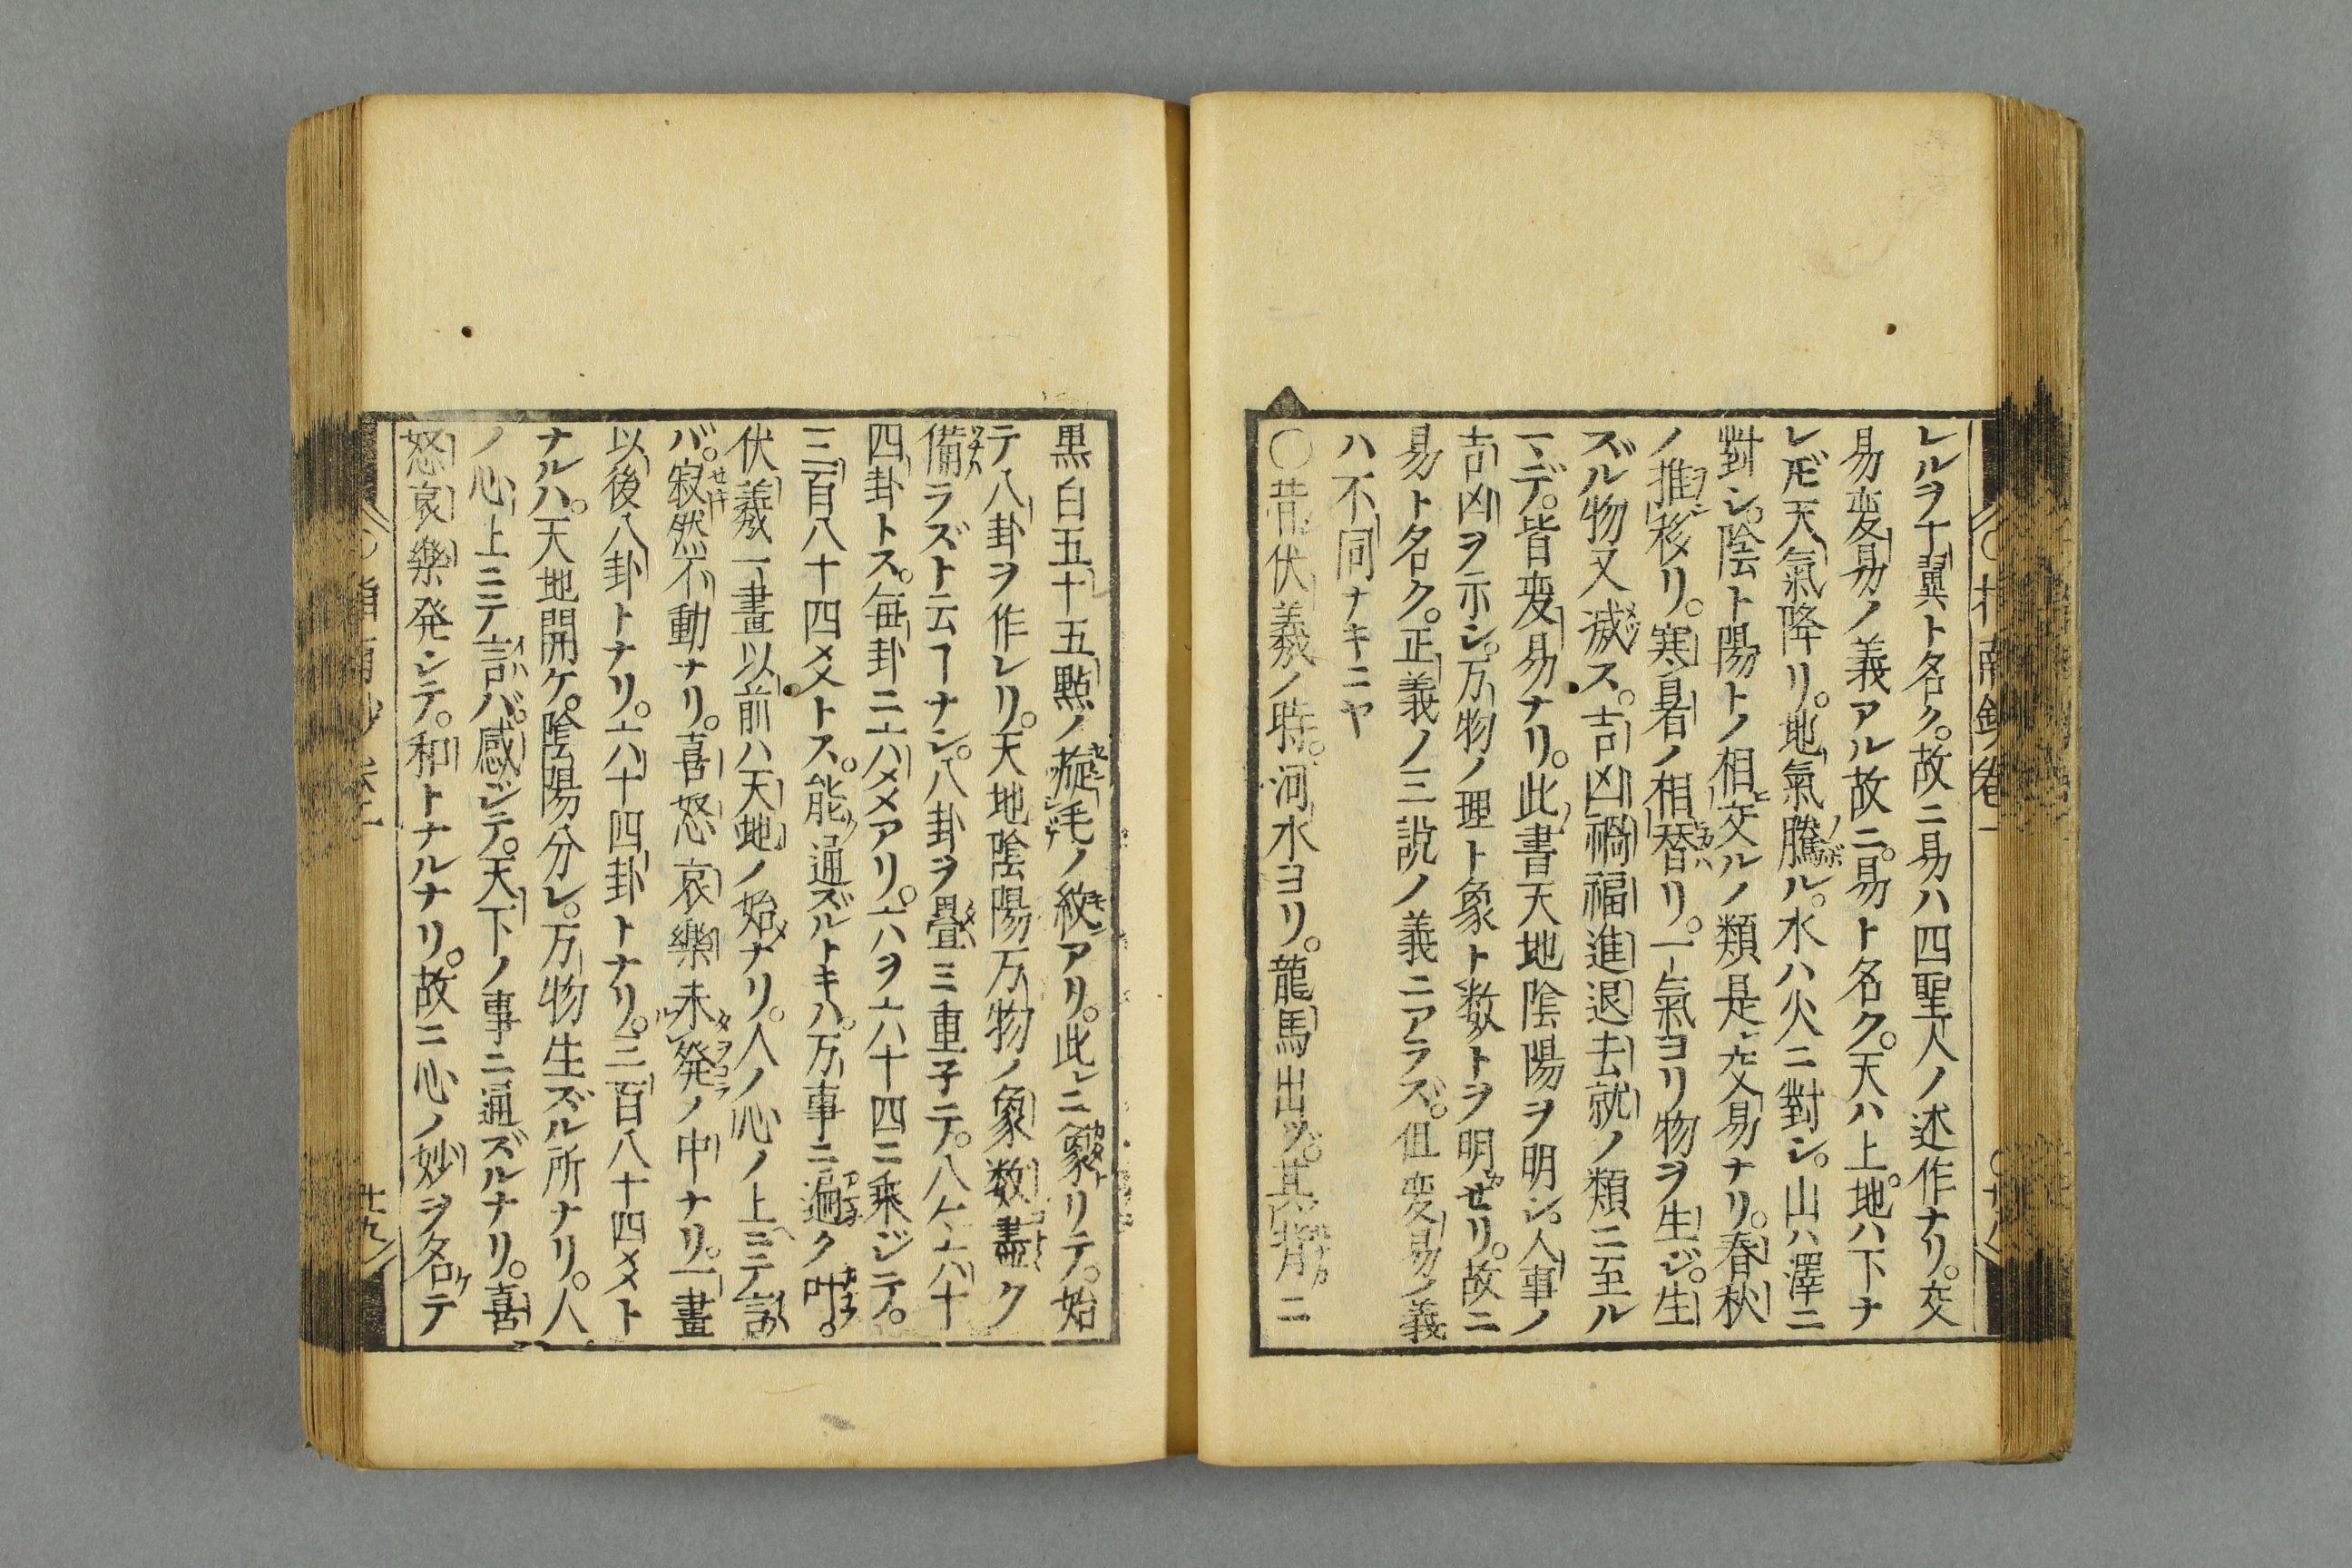 レルヲ十翼ト名ク。故ニ易ハ四聖人ノ述作ナリ。交
易変易ノ義アル故ニ。易ト名ク。天ハ上。地ハ下ナ
レ𪜈天氣降リ。地氣騰ル。水ハ火ニ對シ。山ハ澤ニ
對シ。陰ト陽トノ相交ルノ類是レ交易ナリ。春秋
ノ推移リ。寒暑ノ相替リ。一氣ヨリ物ヲ生ジ。生
ズル物又滅ス。吉凶禍福進退去就ノ類ニ至ル
マデ。皆変易ナリ。此書天地陰陽ヲ明シ。人事ノ
吉凶ヲ示シ。万物ノ理ト象ト数トヲ明セリ。故ニ
易ト名ク。正義ノ三説ノ義ニアラズ。但変易ノ義
ハ不同ナキニヤ
〇昔シ伏羲ノ時。河水ヨリ。龍馬出ヅ。其背ニ
黒白五十五點ノ旋毛ノ紋アリ。此レニ象リテ。始
テ八卦ヲ作レリ。天地陰陽万物ノ象数盡ク
備ラズト云ヿナシ。八卦ヲ畳ミ重子テ。八々六十
四卦トス。毎卦ニ六爻アリ。六ヲ六十四ニ乗ジテ。
三百八十四爻トス。能通ズルトキハ。万事ニ遍ク叶フ。
伏羲一畫以前ハ天地ノ始ナリ。人ノ心ノ上ニテ言
バ。寂然不動ナリ。喜怒哀樂未発ノ中ナリ。一畫
以後八卦トナリ。六十四卦トナリ。三百八十四爻ト
ナルハ。天地開ケ。陰陽分レ。万物生ズル所ナリ。人
ノ心上ニテ言バ。感ジテ。天下ノ事ニ通ズルナリ。喜
怒哀樂発シテ。和トナルナリ。故ニ心ノ妙ヲ名ケテ